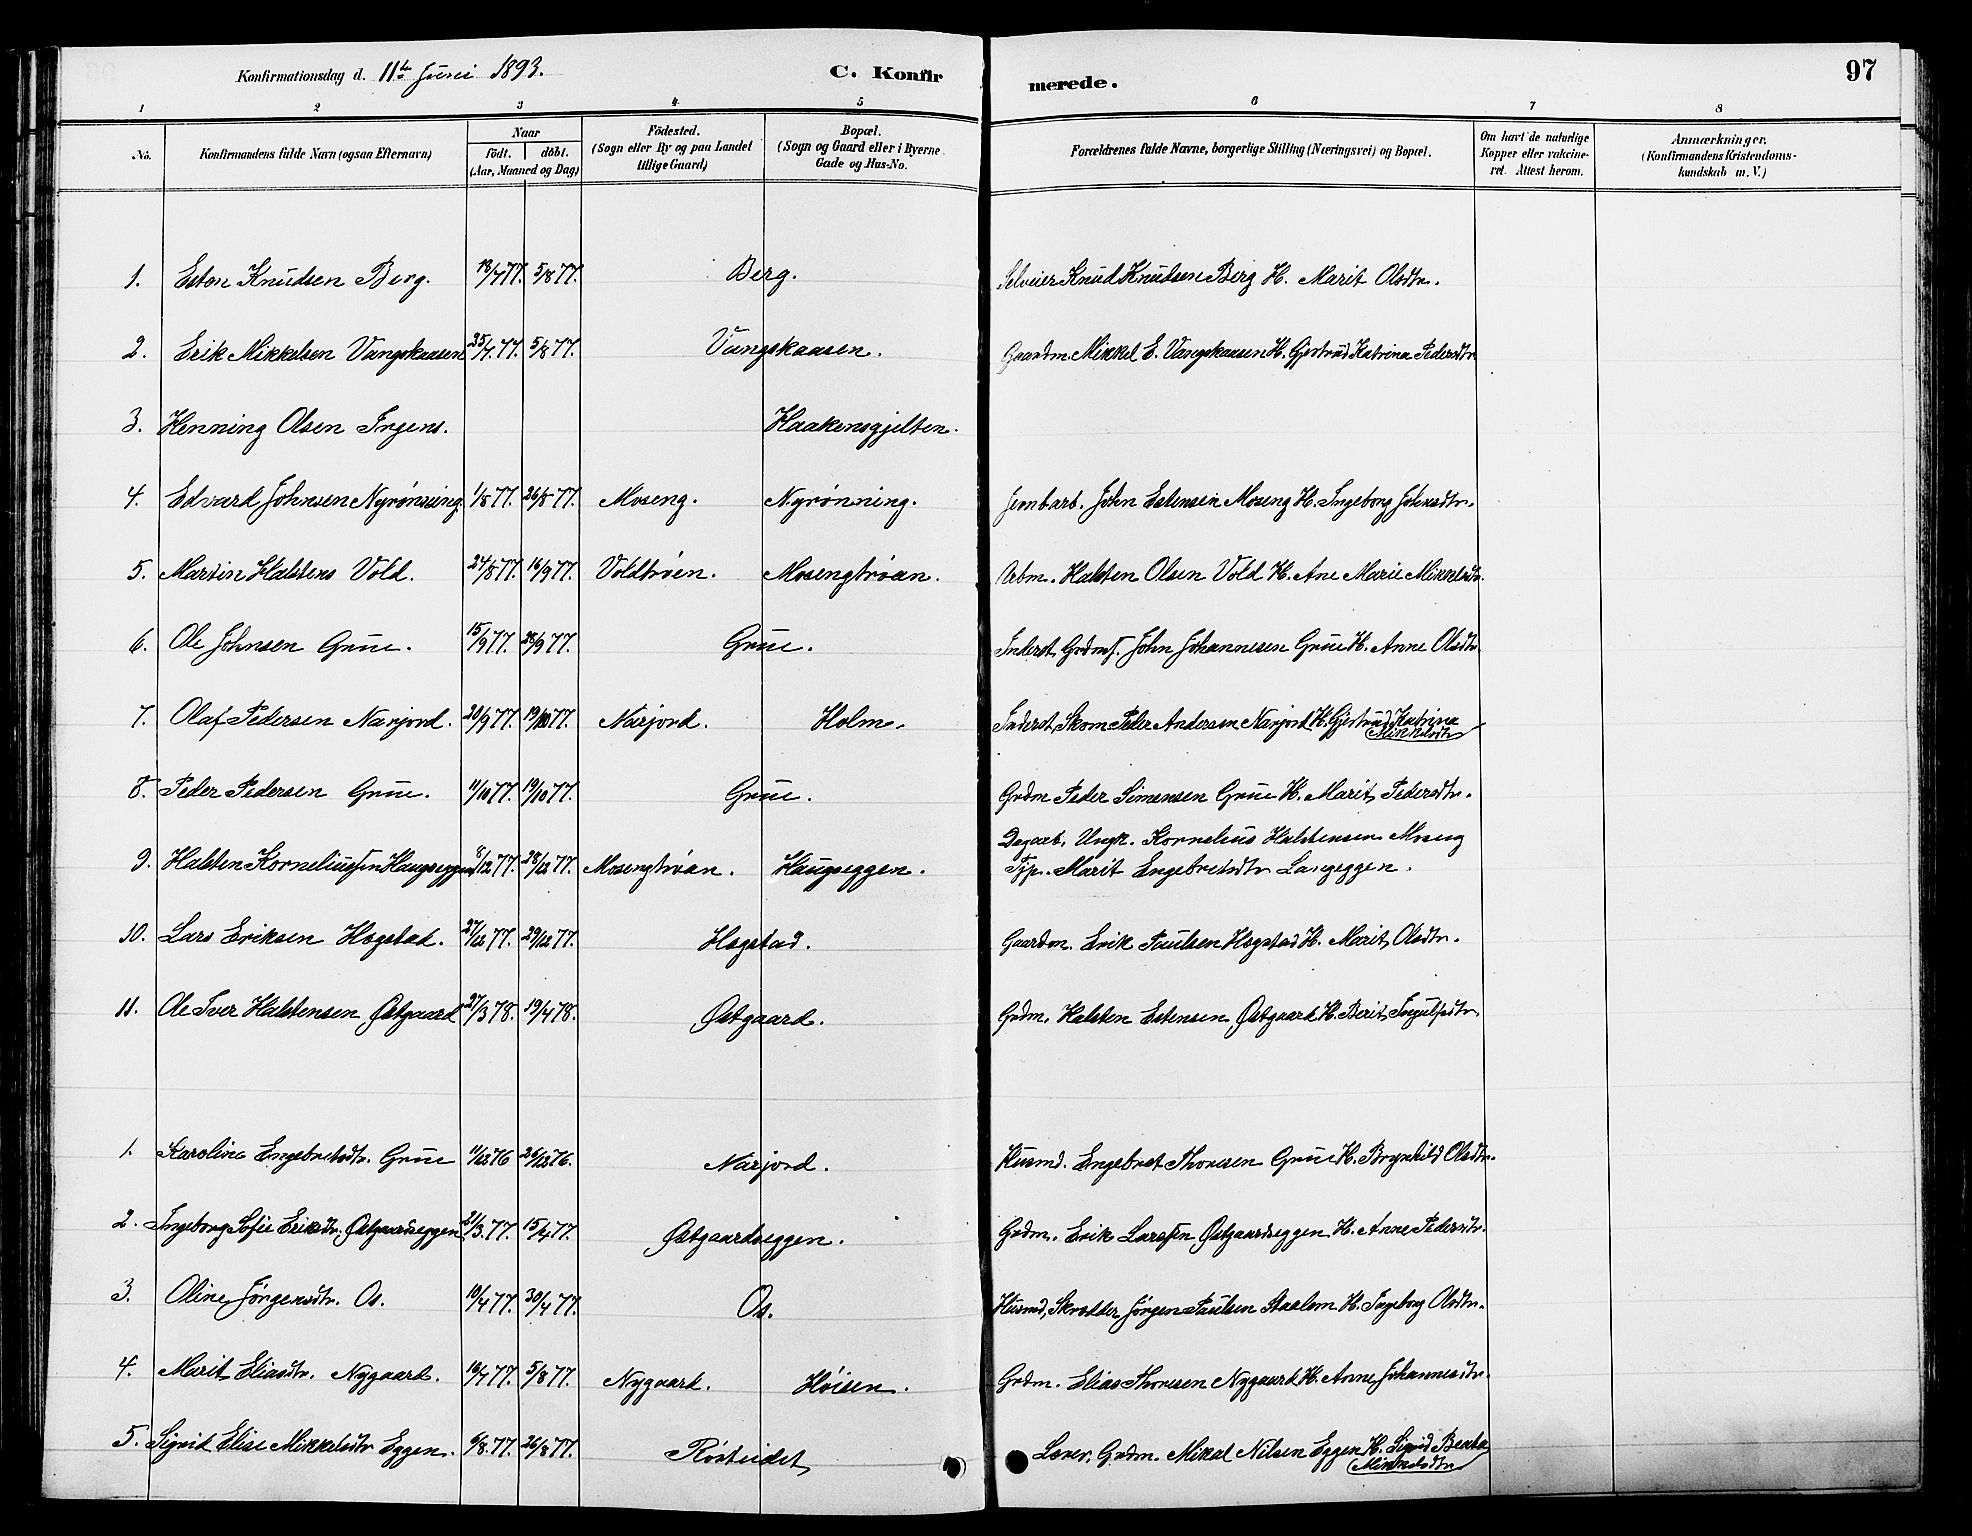 Konfirmationsdag d. 11te Juni 1893.
C. Konfirmerede.
97
1 2 3 4 5 6 7 8
No.
Konfirmandens fulde Navn (ogsaa Efternavn)
Naar
födt. döbt.
(Aar, Maaned og Dag)
Födested.
(Sogn eller By og paa Landet
tillige Gaard)
Bopæl.
(Sogn og Gaard eller i Byerne
Gade og Hus-No.
Forældrenes fulde Navne, borgerlige Stilling (Næringsvei) og Bopæl.
Om havt de naturlige
Kopper eller vakcine-
ret. Attest herom.
Anmærkninger.
(Konfirmandens Kristendoms-
kundskab m. V.)
1. Eston Knudsen Berg. 18/7 77. 5/8 77. Berg. Selveier Knud Knudsen Berg H. Marit Olsdtr.
2. Erik Mikkelsen Vangskaasen 25/7. 77. 5/8 77. Vangskaasen. Gaardm. Mikkel E. Vangskaasen H. Gjertrud Katrina Pedersdtr
3. Henning Olsen Irgens. Haakensgjelten.
4. Edvard Johnsen Nyrönning. 1/8 77. 26/8 77. Moseng. Nyrönning. Jernb arb. John Estensen Moseng H. Ingeborg Johnsdtr.
5. Martin Halstens Vold. 24/8 77. 16/9 77. Voldtröen. Mosengtröan. Arbm. Halsten Olsen Vold H. Ane Marie Mikkelsdtr.
6. Ole Johnsen Grue. 15/9 77. 28/9 77. Grue. Inderst, Grdmf. John Johannesen Grue H. Anne Olsdtr
7. Olaf Pedersen Narjord. 20/9 77. 19/10 77. Narjord. Holm. Inderst, Skom Peder Andersen Narjord H. Gjertrud Katrina
Mikkelsdtr
8. Peder Pedersen Grue. 11/10 77. 19/10 77. Grue. Grdm Peder Simensen Grue H. Marit Pedersdtr.
Dagarb. Ungk. Kornelius Halstensen Moseng
9. Halsten Korneliussen Haugseggen 8/12 77. 28/12 77. Mosengtröan. Haugseggen. Pige. Marit Engebretsdtr Langeggen.
10. Lars Eriksen Hogstad. 27/12 77. 29/12 77. Hogstad. Gaardm. Erik Paulsen Hogstad H. Marit Olsdtr.
11. Ole Iver Halstensen Østgaard 27/3 78. 19/4 78. Østgaard. Grdm. Halsten Estensen Østgaard H. Berit Ingulfsdtr.
1. Karoline Engebretsdtr. Grue 11/12 76 26/12 76. Narjord. Husmd. Engebret Thoresen Grue H. Brynhild Olsdtr.
2. Ingeborg Sofie Eriksdtr. Østgaardseggen 21/3. 77. 15/4 77. Østgaardseggen. Grdm. Erik Larssen Østgaardseggen H. Anne Pedersdtr.
3. Oline Jörgensdtr. Os. 10/4 77. 30/4 77. Os. Husmd, Skrædder Jörgen Paulsen H. Ingeborg Olsdtr.
4. Marit Eliasdtr. Nygaard. 16/7 77. 5/8 77. Nygaard. Höisen. Grdm. Elias Thoresen Nygaard H. Anne Johannesdtr.
5. Sigrid Elise Mikkelsdtr Eggen. 6/8. 77. 26/8 77. Rösteidet Lærer, Grdm. Mikal Nilsen Eggen H. Sigrid Beata
Mikkelsdtr